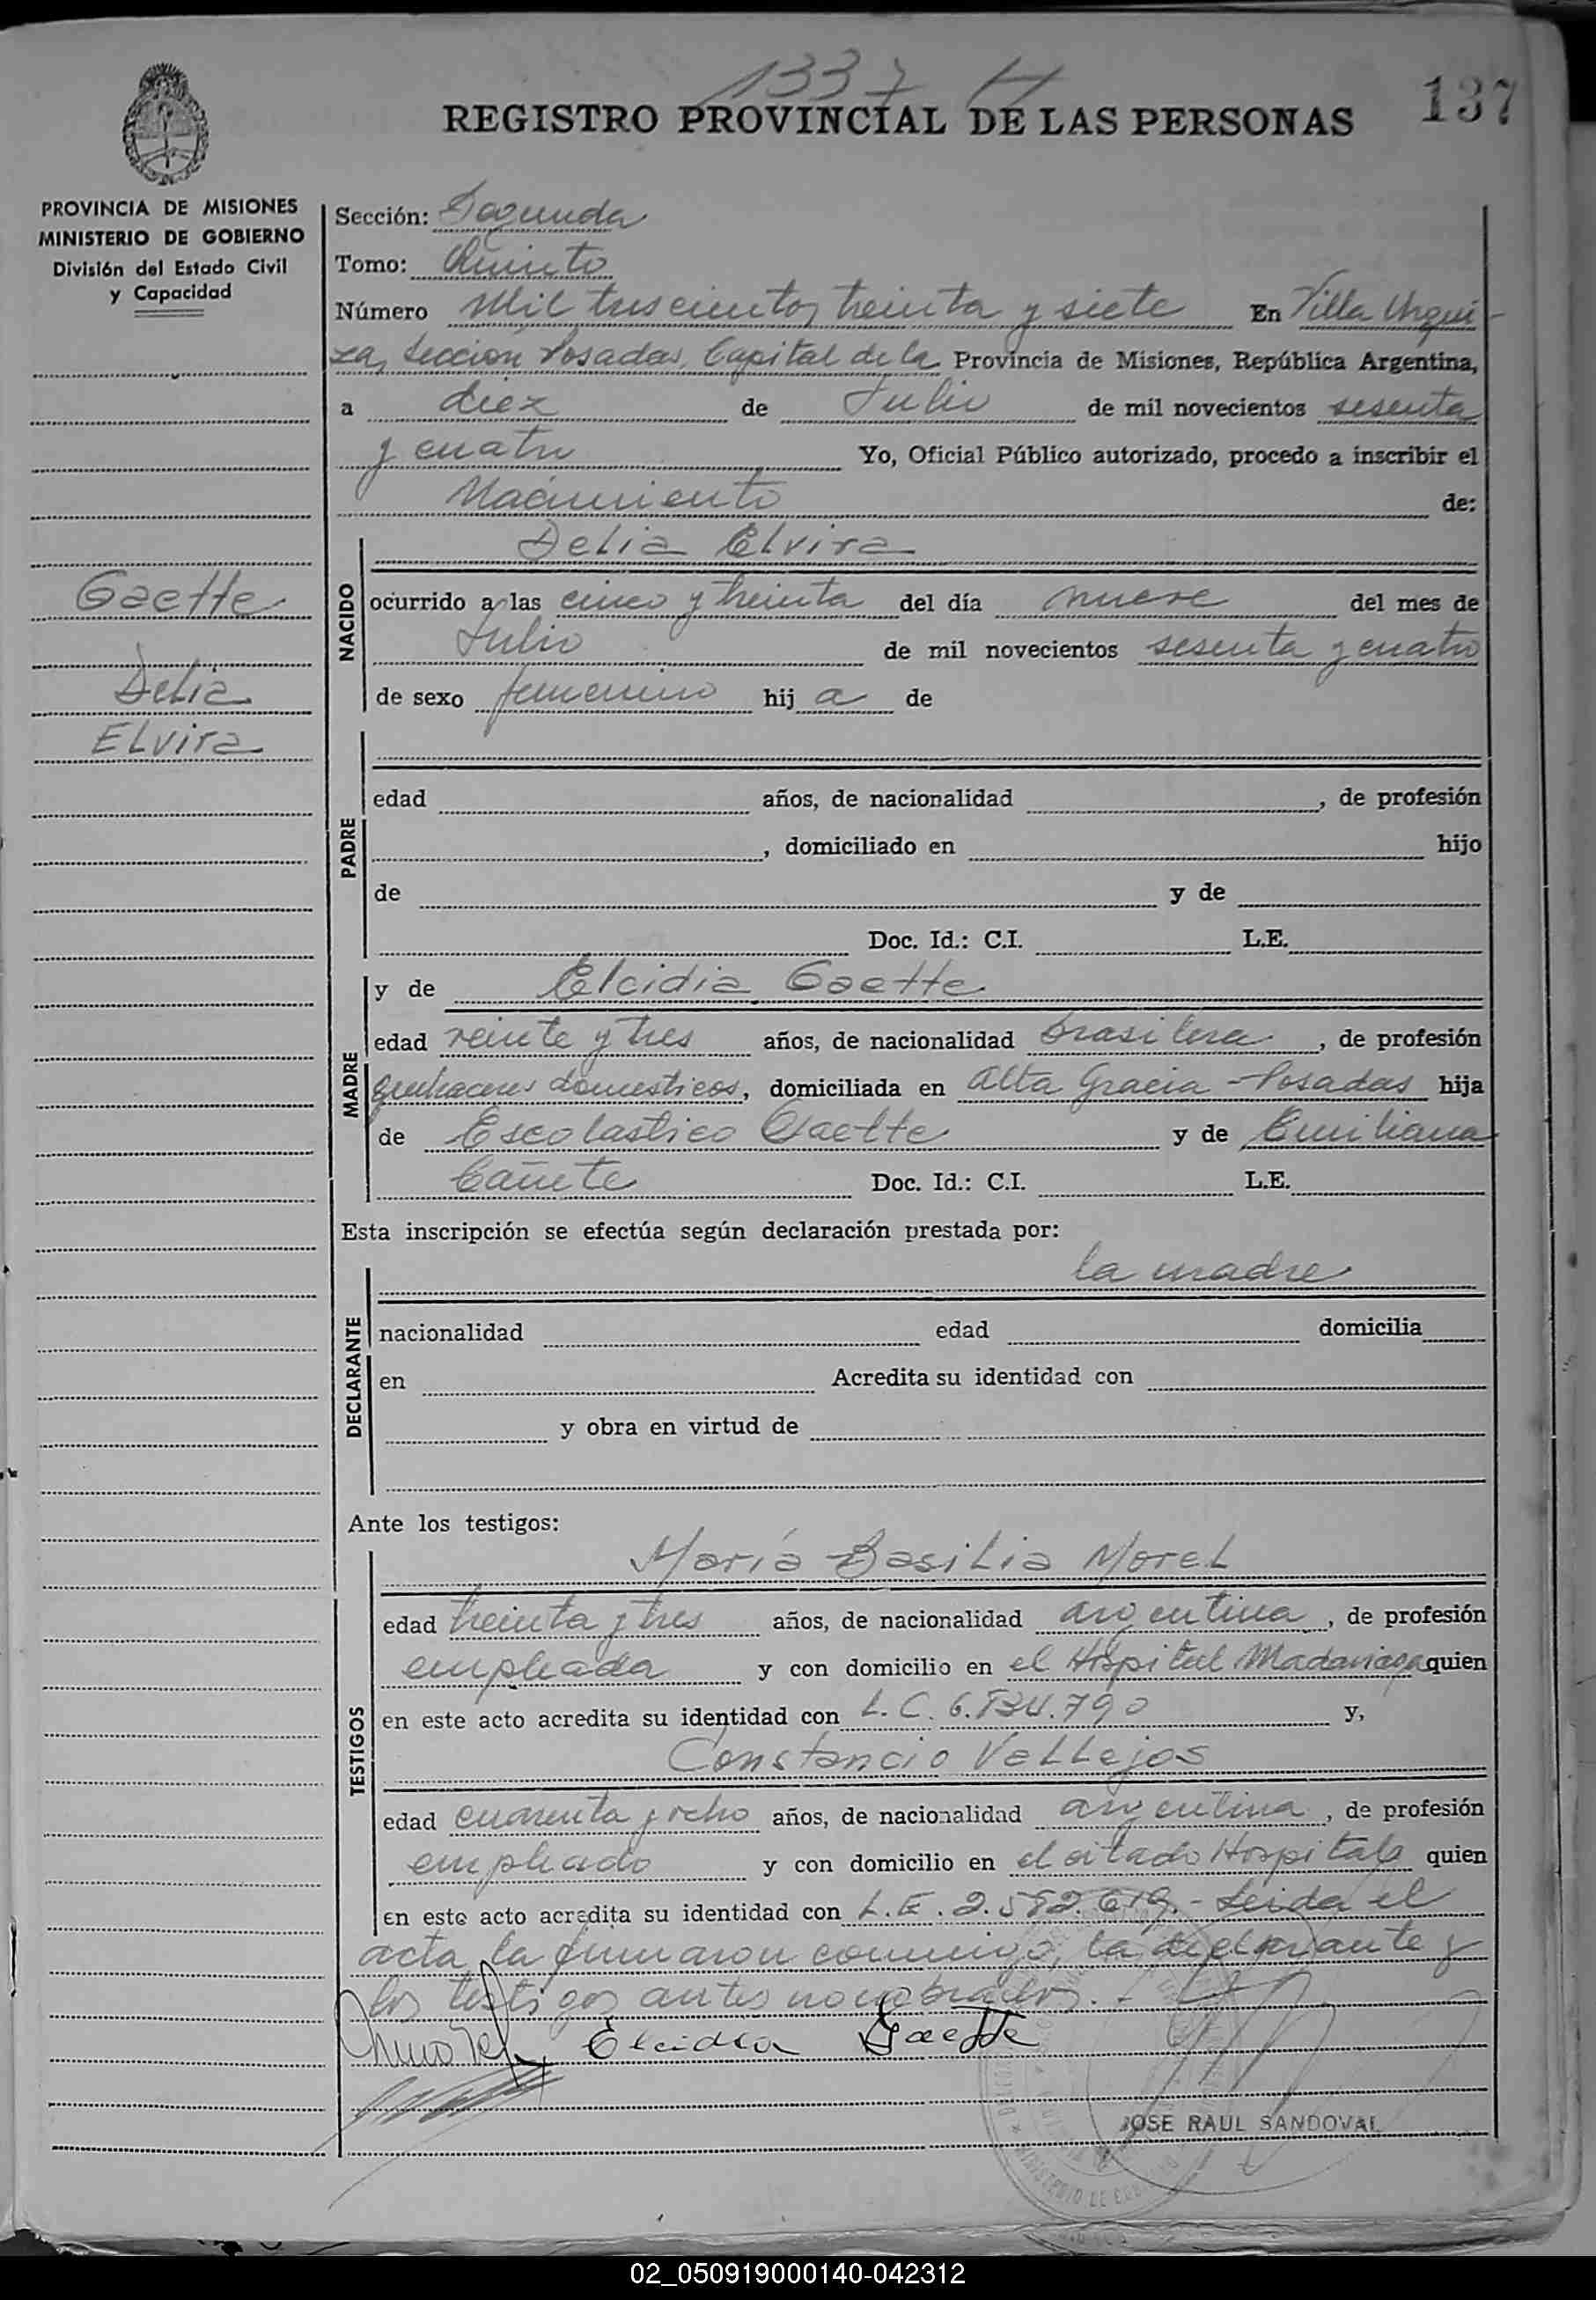 1337 H
REGISTRO PROVINCIAL DE LAS PERSONAS
137
PROVINCIA DE MISIONES
MINISTERIO DE GOBIERNO
División del Estado Civil
y Capacidad
Gaette
Delia
Elvira
Sección: Segunda
Tomo: Quinto
Número Mil trescientos treinta y siete En Villa Urqui-
za, Sección Posadas, Capital de la Provincia de Misiones, República Argentina,
a diez de Julio de mil novecientos sesenta
y cuatro Yo, Oficial Público autorizado, procedo a inscribir el
Nacimiento de:
NACIDO
Delia Elvira
ocurrido a las cinco y treinta del día nueve del mes de
Julio de mil novecientos sesenta y cuatro
de sexo femenino hij a de
PADRE
edad años, de nacionalidad , de profesión
, domiciliado en hijo
de y de
Doc. Id.: C.I. L.E.
MADRE
y de Elcidia Gaette
edad veinte y tres años, de nacionalidad brasilera , de profesión
quehaceres domesticos, domiciliada en Alta Gracia - Posadas hija
de Escolastico Gaette y de Emiliana
Cañete Doc. Id.: C.I. L.E.
Esta inscripción se efectúa según declaración prestada por:
DECLARANTE
la madre
nacionalidad edad domicilia
en Acredita su identidad con
y obra en virtud de
Ante los testigos:
TESTIGOS
María Basilia Morel
edad treinta y tres años, de nacionalidad argentina , de profesión
empleada y con domicilio en el Hospital Madariaga quien
en este acto acredita su identidad con L.C. y,
Constancio Vallejos
edad cuarenta y ocho años, de nacionalidad argentina , de profesión
empleado y con domicilio en el citado Hospital quien
en este acto acredita su identidad con L.E. 2.582.619.- Leida el
acta, la firmaron conmigo, la declarante y
los testigos antes nombrados.-
Elcidia Gaette
JOSE RAUL SANDOVAL
02_050919000140-042312